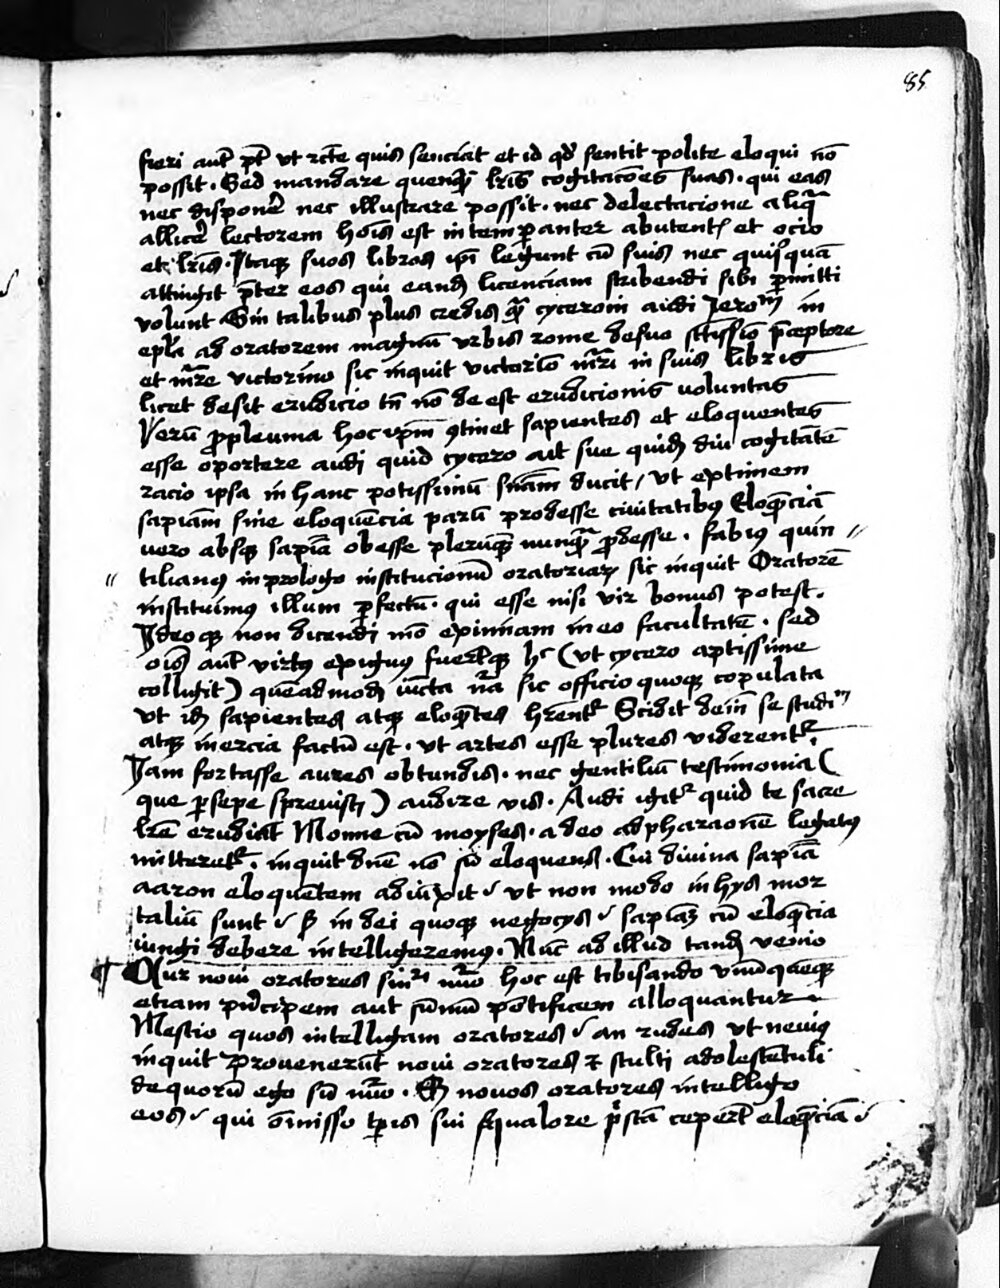 85
fieri aut pt ut rcte quis senciat et id qd sentit polite eloqui nō
possit. Sed mandare quenq̄ lrīs cogitacōes suas. qui eas
nec disponē nec illustrare possit. nec delectacione aliq̄
allicē lectorem hoīs est intempanter abutent et ocio
et lrīs. Itaq suos libros ipī legunt cū suis nec quisquā
attingit pter eos qui eandē licenciam scribendi sibi pmitti
volunt Sin talibus plus credis q̄ cyceroni audi Jeroᵐ in
epla ad oratorem magnū urbis rome de suo preceptore
et victorino sic inquit victorīo nrī in suis libris
licet desit erudicio tn̄ nō de est erudicionis voluntas
Verū hoc ipm 9tinet sapientes et eloquentes
esse oportere audi quid cycero ait sue quidē diu cogitātē
racio ipsa in hanc potissimū snam ducit, ut extimem
sapiam sine eloquēcia parū prodesse civitatibus Eloq̄nciā
vero absq sapia obesse plerūq nunq̄ pdesse. fabius quin
tilianus in prologo institucionū oratoriar sic inquit Oratorē
instituimus illum pfectū. qui esse nisi vir bonus potest.
Ideoq non dicendi mō eximiam in eo facultatē. sed
oīs aut virtus fuertq hc (ut cycero aptissime
colligit) quēadmodū iūcta nra sic officio quoq copulata
ut idē sapientes atq eloqntes hrentʳ Scidit dein se studiᵐ
atq inercia factū est. ut artes esse plures viderentʳ
Iam fortasse aures obtundis. nec gentiliū testimonia (
que psepe sprevisti) audire vis. Audi igitʳ quid te sacre
lre erudiāt Nonne cū moyses. a deo ad pharaonē legatus
mitteretʳ. inquit dne nō sū eloquens. Cui divina sapia
aaron eloquētem adiūxit ut non modo in hys mor
taliū sunt s in dei quoq negocys sapiam cū eloqncia
iungi debere intelligeremus. Nūc ad illud tandē venio
Cur novi oratores hoc est tibisando unūquēq
etiam principem aut sūmū pōtificem alloquantur
Mestio quos intelligam oratores an rudes ut nevius
inquit Provenerūt novi oratores et stulti adolescētuli
de quorū ego sū nūo. Et novos oratores intelligo
eos qui ōmisso tpis sui squalore pstā cepert eloqnciā